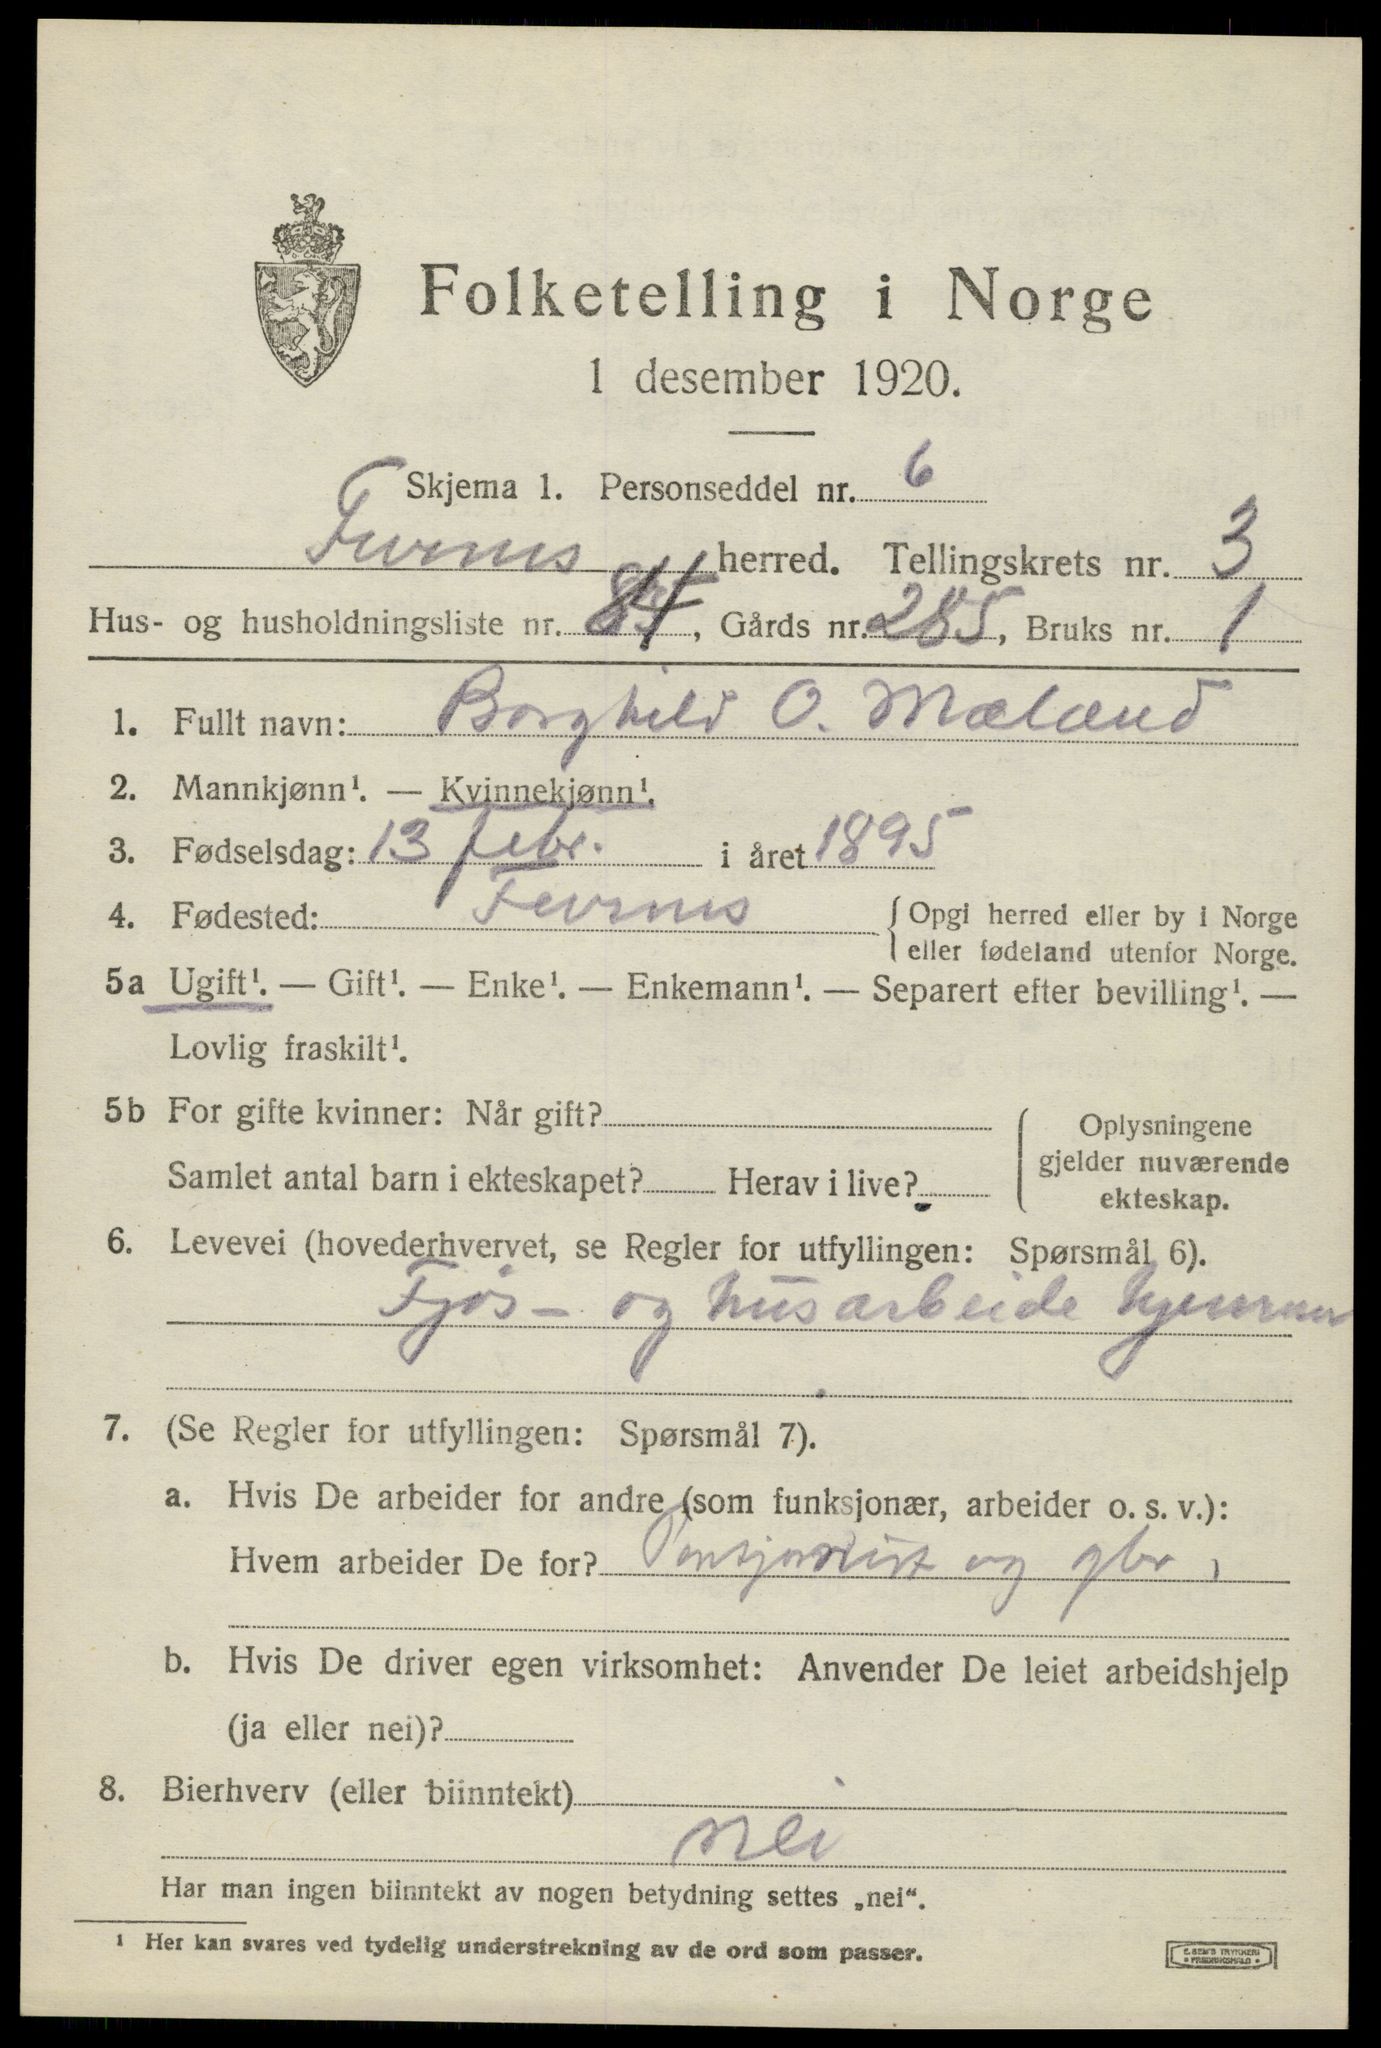 Folketelling i Norge
1 desember 1920.
Skjema 1. Personseddel nr. 6
Furnes herred. Tellingskrets nr. 3
Hus- og husholdningsliste nr. 84, Gårds nr. 285, Bruks nr. 1
1. Fullt navn: Borghild O. Mæland
2. Mannkjønn¹. — Kvinnekjønn¹.
3. Fødselsdag: 13 febr. i året 1895
4. Fødested: Furnes {Opgi herred eller by i Norge
eller fødeland utenfor Norge.
5a Ugift¹. — Gift¹. — Enke¹. — Enkemann¹. — Separert efter bevilling¹. —
Lovlig fraskilt¹.
5b For gifte kvinner: Når gift?
Samlet antal barn i ekteskapet? Herav i live?
Oplysningene
gjelder nuværende
ekteskap.
6. Levevei (hovederhvervet, se Regler for utfyllingen: Spørsmål 6).
Fjøs- og husarbeide hjemme
7. (Se Regler for utfyllingen: Spørsmål 7).
a. Hvis De arbeider for andre (som funksjonær, arbeider o. s. v.):
Hvem arbeider De for? Pensjonist og gbr,
b. Hvis De driver egen virksomhet: Anvender De leiet arbeidshjelp
(ja eller nei)?
8. Bierhverv (eller biinntekt)
nei
Har man ingen biinntekt av nogen betydning settes „nei“.
¹ Her kan svares ved tydelig understrekning av de ord som passer.
E. SEM'S TRYKKERI
• FREDRIKSHALD •